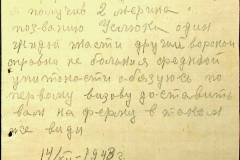 я получив 2 мерина
позванию Челюка один
гнидой масти другий вороной
справки не больния средней
упитоности обязуюсь по
первому визову доставить
вам на ферму в таком
же виды
14/III-1943 г.